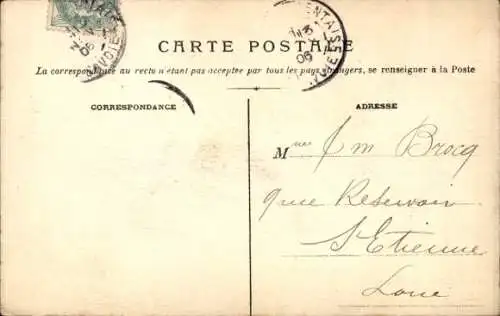 ENTAISE
SAVOIE
CARTE POSTALE
La correspondance au recto n'étant pas acceptée par tous les pays étrangers, se renseigner à la Poste
CORRESPONDANCE
ADRESSE
M Brocq
rue Reservoir
St Etienne
Loire